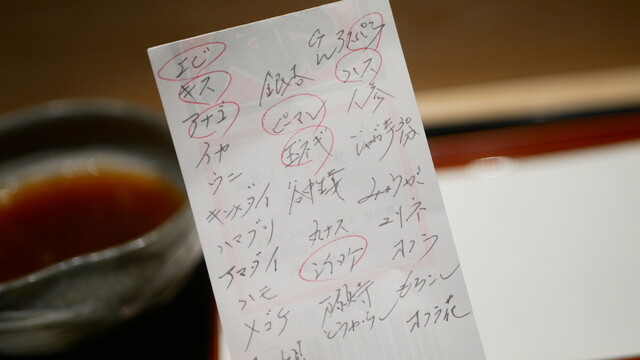 エビ
キス
アナゴ
イカ
ウニ
キンメダイ
ハマグリ
アマダイ
ハモ
メゴチ
銀杏
ピーマン
玉ネギ
谷中生姜
丸ナス
シイタケ
万願寺
とうがらし
ハス
人参
じゃが芋30分
みょうが
ユリネ
オクラ
もろこし
オクラ花